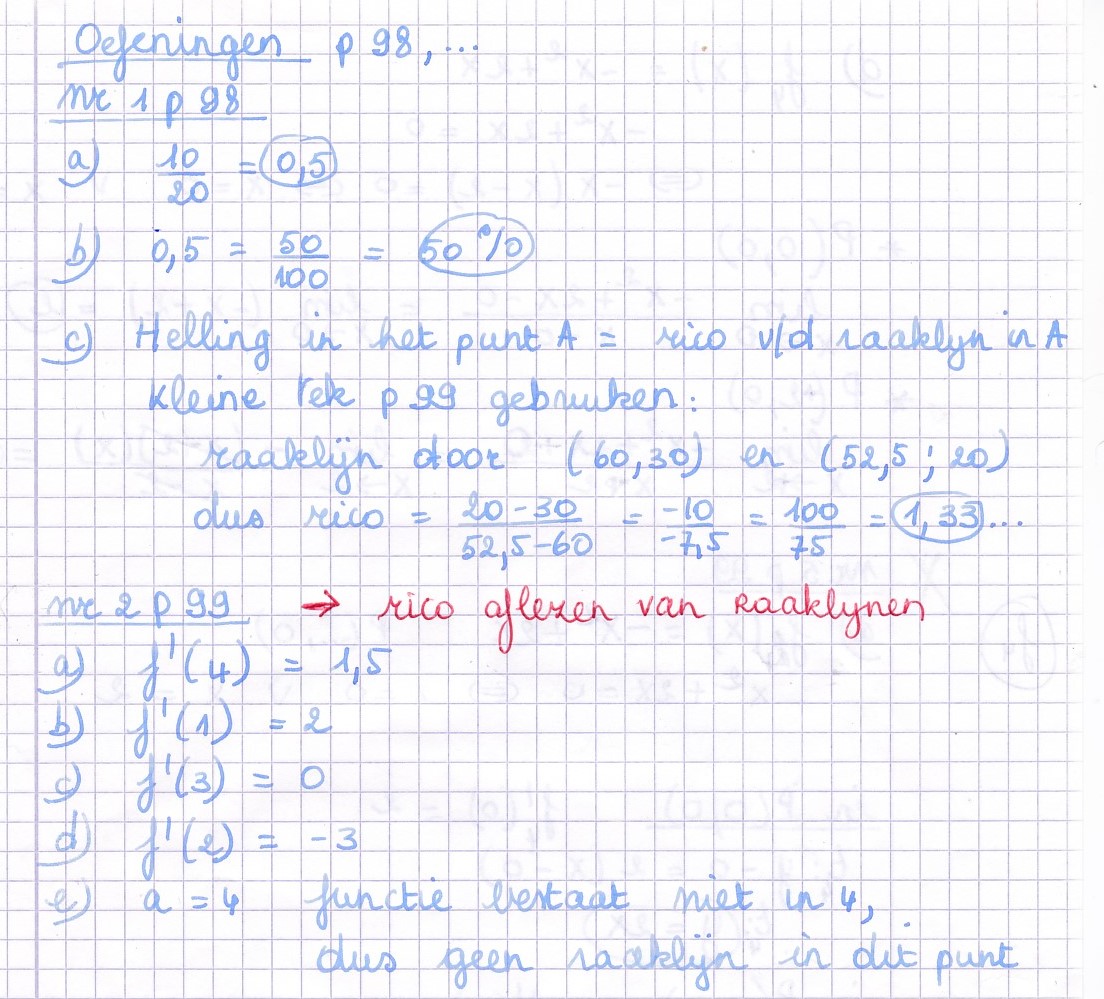 Oefeningen p 98, ...
nr 1 p 98
a) 10/20 = 0,5
b) 0,5 = 50/100 = 50 %
c) Helling in het punt A = rico v/d raaklijn in A
kleine tek p 99 gebruiken:
raaklijn door (60,30) en (52,5 ; 20)
dus rico = 20-30/52,5-60 = -10/-7,5 = 100/75 = 1,33...
nr 2 p 99 → rico aflezen van raaklijnen
a) f'(4) = 1,5
b) f'(1) = 2
c) f'(3) = 0
d) f'(2) = -3
e) a = 4 functie bestaat niet in 4,
dus geen raaklijn in dit punt